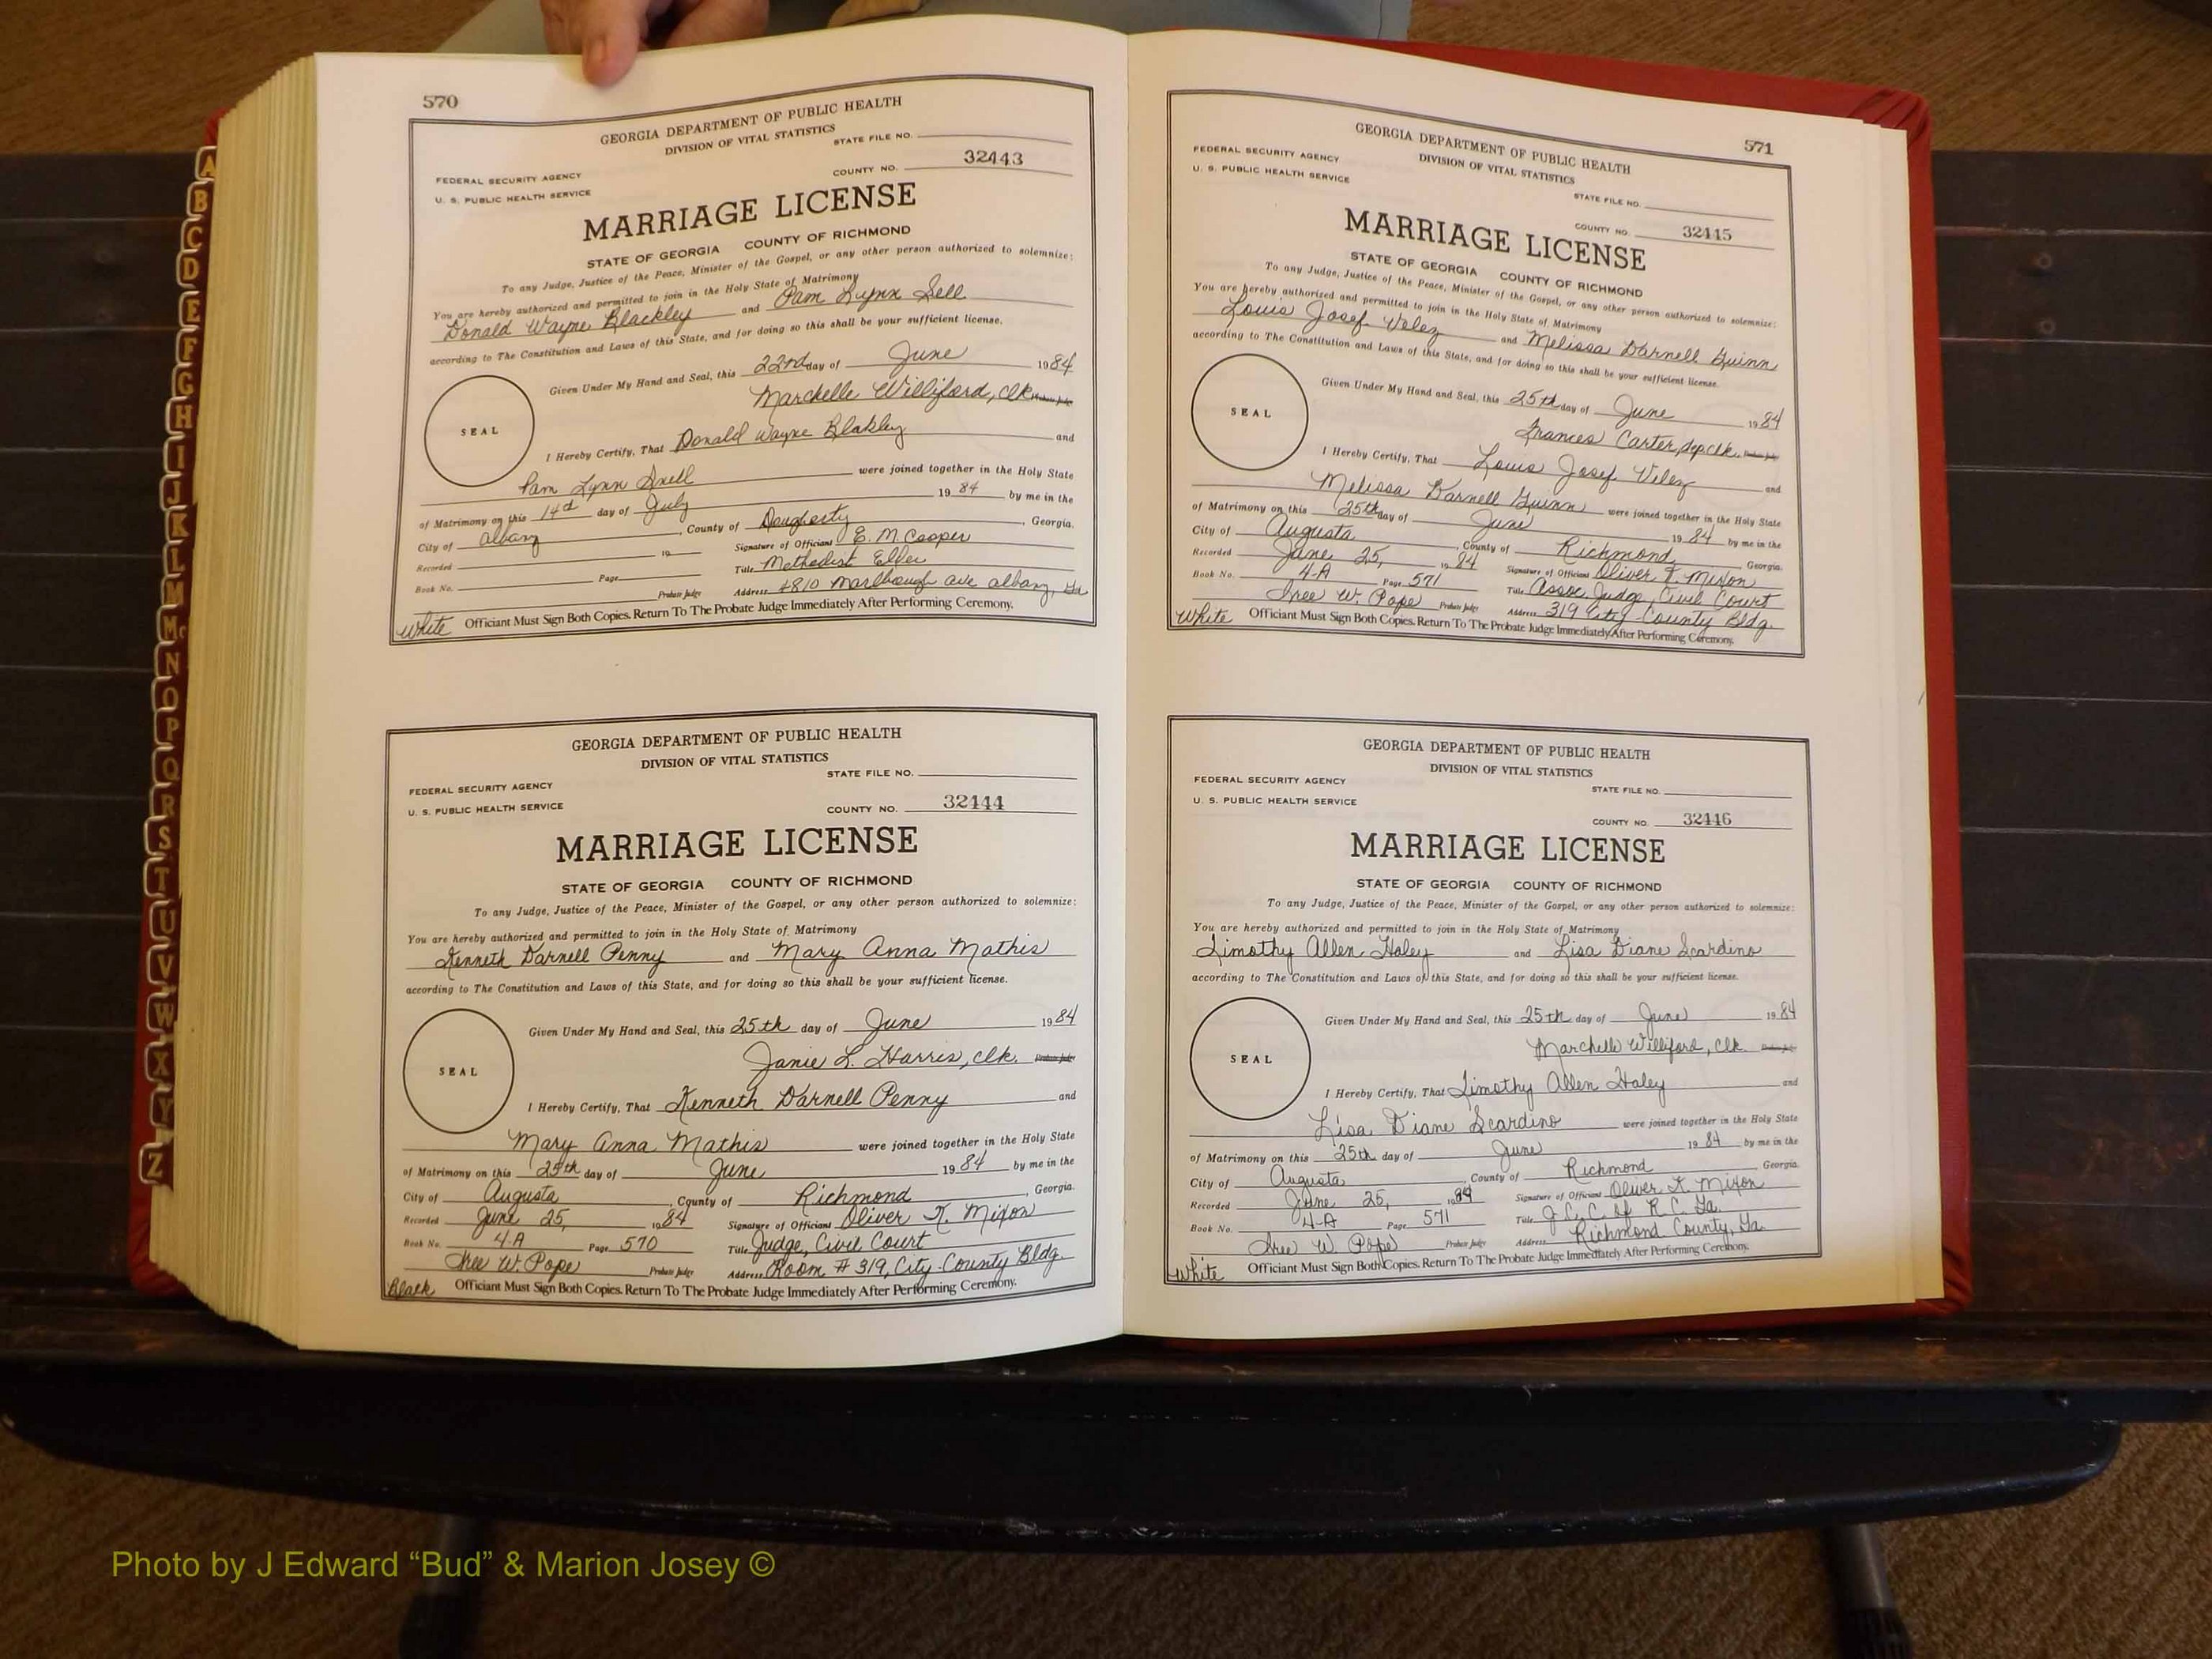 A
B
C
D
E
F
G
H
I
J
K
L
M
Mc
N
O
P
Q
R
S
T
U
V
W
X
Y
Z
570
GEORGIA DEPARTMENT OF PUBLIC HEALTH
DIVISION OF VITAL STATISTICS
STATE FILE NO.
COUNTY NO. 32443
FEDERAL SECURITY AGENCY
U. S. PUBLIC HEALTH SERVICE
MARRIAGE LICENSE
STATE OF GEORGIA COUNTY OF RICHMOND
To any Judge, Justice of the Peace, Minister of the Gospel, or any other person authorized to solemnize:
You are hereby authorized and permitted to join in the Holy State of Matrimony
Donald Wayne Blackley and Pam Lynn Sell
according to The Constitution and Laws of this State, and for doing so this shall be your sufficient license.
Given Under My Hand and Seal, this 22nd day of June 1984
Marchelle Williford, clk. Probate Judge
SEAL
I Hereby Certify, That Donald Wayne Blakley and
Pam Lynn were joined together in the Holy State
of Matrimony on this 14th day of July 19 84 by me in the
City of Albany, County of Dougherty, Georgia.
Recorded 19 Signature of Officiant E. M. Cooper
Book No. Page Title Methodist Elder
Probate Judge Address 4810 Marlbough ave albany, Ga
White Officiant Must Sign Both Copies. Return To The Probate Judge Immediately After Performing Ceremony.
GEORGIA DEPARTMENT OF PUBLIC HEALTH
DIVISION OF VITAL STATISTICS
STATE FILE NO.
FEDERAL SECURITY AGENCY
U. S. PUBLIC HEALTH SERVICE
COUNTY NO. 32444
MARRIAGE LICENSE
STATE OF GEORGIA COUNTY OF RICHMOND
To any Judge, Justice of the Peace, Minister of the Gospel, or any other person authorized to solemnize:
You are hereby authorized and permitted to join in the Holy State of Matrimony
Kenneth Darnell Penny and Mary Anna Mathis
according to The Constitution and Laws of this State, and for doing so this shall be your sufficient license.
Given Under My Hand and Seal, this 25th day of June 1984
Janie L. Harris, clk. Probate Judge
SEAL
I Hereby Certify, That Kenneth Darnell Penny and
Mary Anna Mathis were joined together in the Holy State
of Matrimony on this 25th day of June 19 84 by me in the
City of Augusta, County of Richmond, Georgia.
Recorded June 25, 1984 Signature of Officiant Oliver K. Mixon
Book No. 4-A Page 570 Title Judge, Civil Court
W. Pope Probate Judge Address Room # 319, City-County Bldg.
Black Officiant Must Sign Both Copies. Return To The Probate Judge Immediately After Performing Ceremony.
571
GEORGIA DEPARTMENT OF PUBLIC HEALTH
DIVISION OF VITAL STATISTICS
FEDERAL SECURITY AGENCY
U. S. PUBLIC HEALTH SERVICE
STATE FILE NO.
COUNTY NO. 32445
MARRIAGE LICENSE
STATE OF GEORGIA COUNTY OF RICHMOND
To any Judge, Justice of the Peace, Minister of the Gospel, or any other person authorized to solemnize:
You are hereby authorized and permitted to join in the Holy State of Matrimony
Louis Josef Velez and Melissa Darnell Guinn
according to The Constitution and Laws of this State, and for doing so this shall be your sufficient license.
Given Under My Hand and Seal, this 25th day of June 1984
Frances Carter, dep clk. Probate Judge
SEAL
I Hereby Certify, That Louis Josef Velez and
Melissa Darnell Guinn were joined together in the Holy State
of Matrimony on this 25th day of June 19 84 by me in the
City of Augusta, County of Richmond, Georgia.
Recorded June 25, 1984 Signature of Officiant Oliver K. Mixon
Book No. 4-A Page 571 Title Assoc. Judge, Civil Court
W. Pope Probate Judge Address 319 City-County Bldg.
White Officiant Must Sign Both Copies. Return To The Probate Judge Immediately After Performing Ceremony.
GEORGIA DEPARTMENT OF PUBLIC HEALTH
DIVISION OF VITAL STATISTICS
FEDERAL SECURITY AGENCY
U. S. PUBLIC HEALTH SERVICE
STATE FILE NO.
COUNTY NO. 32446
MARRIAGE LICENSE
STATE OF GEORGIA COUNTY OF RICHMOND
To any Judge, Justice of the Peace, Minister of the Gospel, or any other person authorized to solemnize:
You are hereby authorized and permitted to join in the Holy State of Matrimony
Timothy Allen Haley and Lisa Diane Scardino
according to The Constitution and Laws of this State, and for doing so this shall be your sufficient license.
Given Under My Hand and Seal, this 25th day of June 1984
Marchelle Williford, clk. Probate Judge
SEAL
I Hereby Certify, That Timothy Allen Haley and
Lisa Diane Scardino were joined together in the Holy State
of Matrimony on this 25th day of June 19 84 by me in the
City of Augusta, County of Richmond, Georgia.
Recorded June 25, 1984 Signature of Officiant Oliver K. Mixon
Book No. 4-A Page 571 Title J. C. C. of R. C. Ga.
W. Pope Probate Judge Address Richmond County, Ga.
White Officiant Must Sign Both Copies. Return To The Probate Judge Immediately After Performing Ceremony.
Photo by J Edward “Bud” & Marion Josey ©